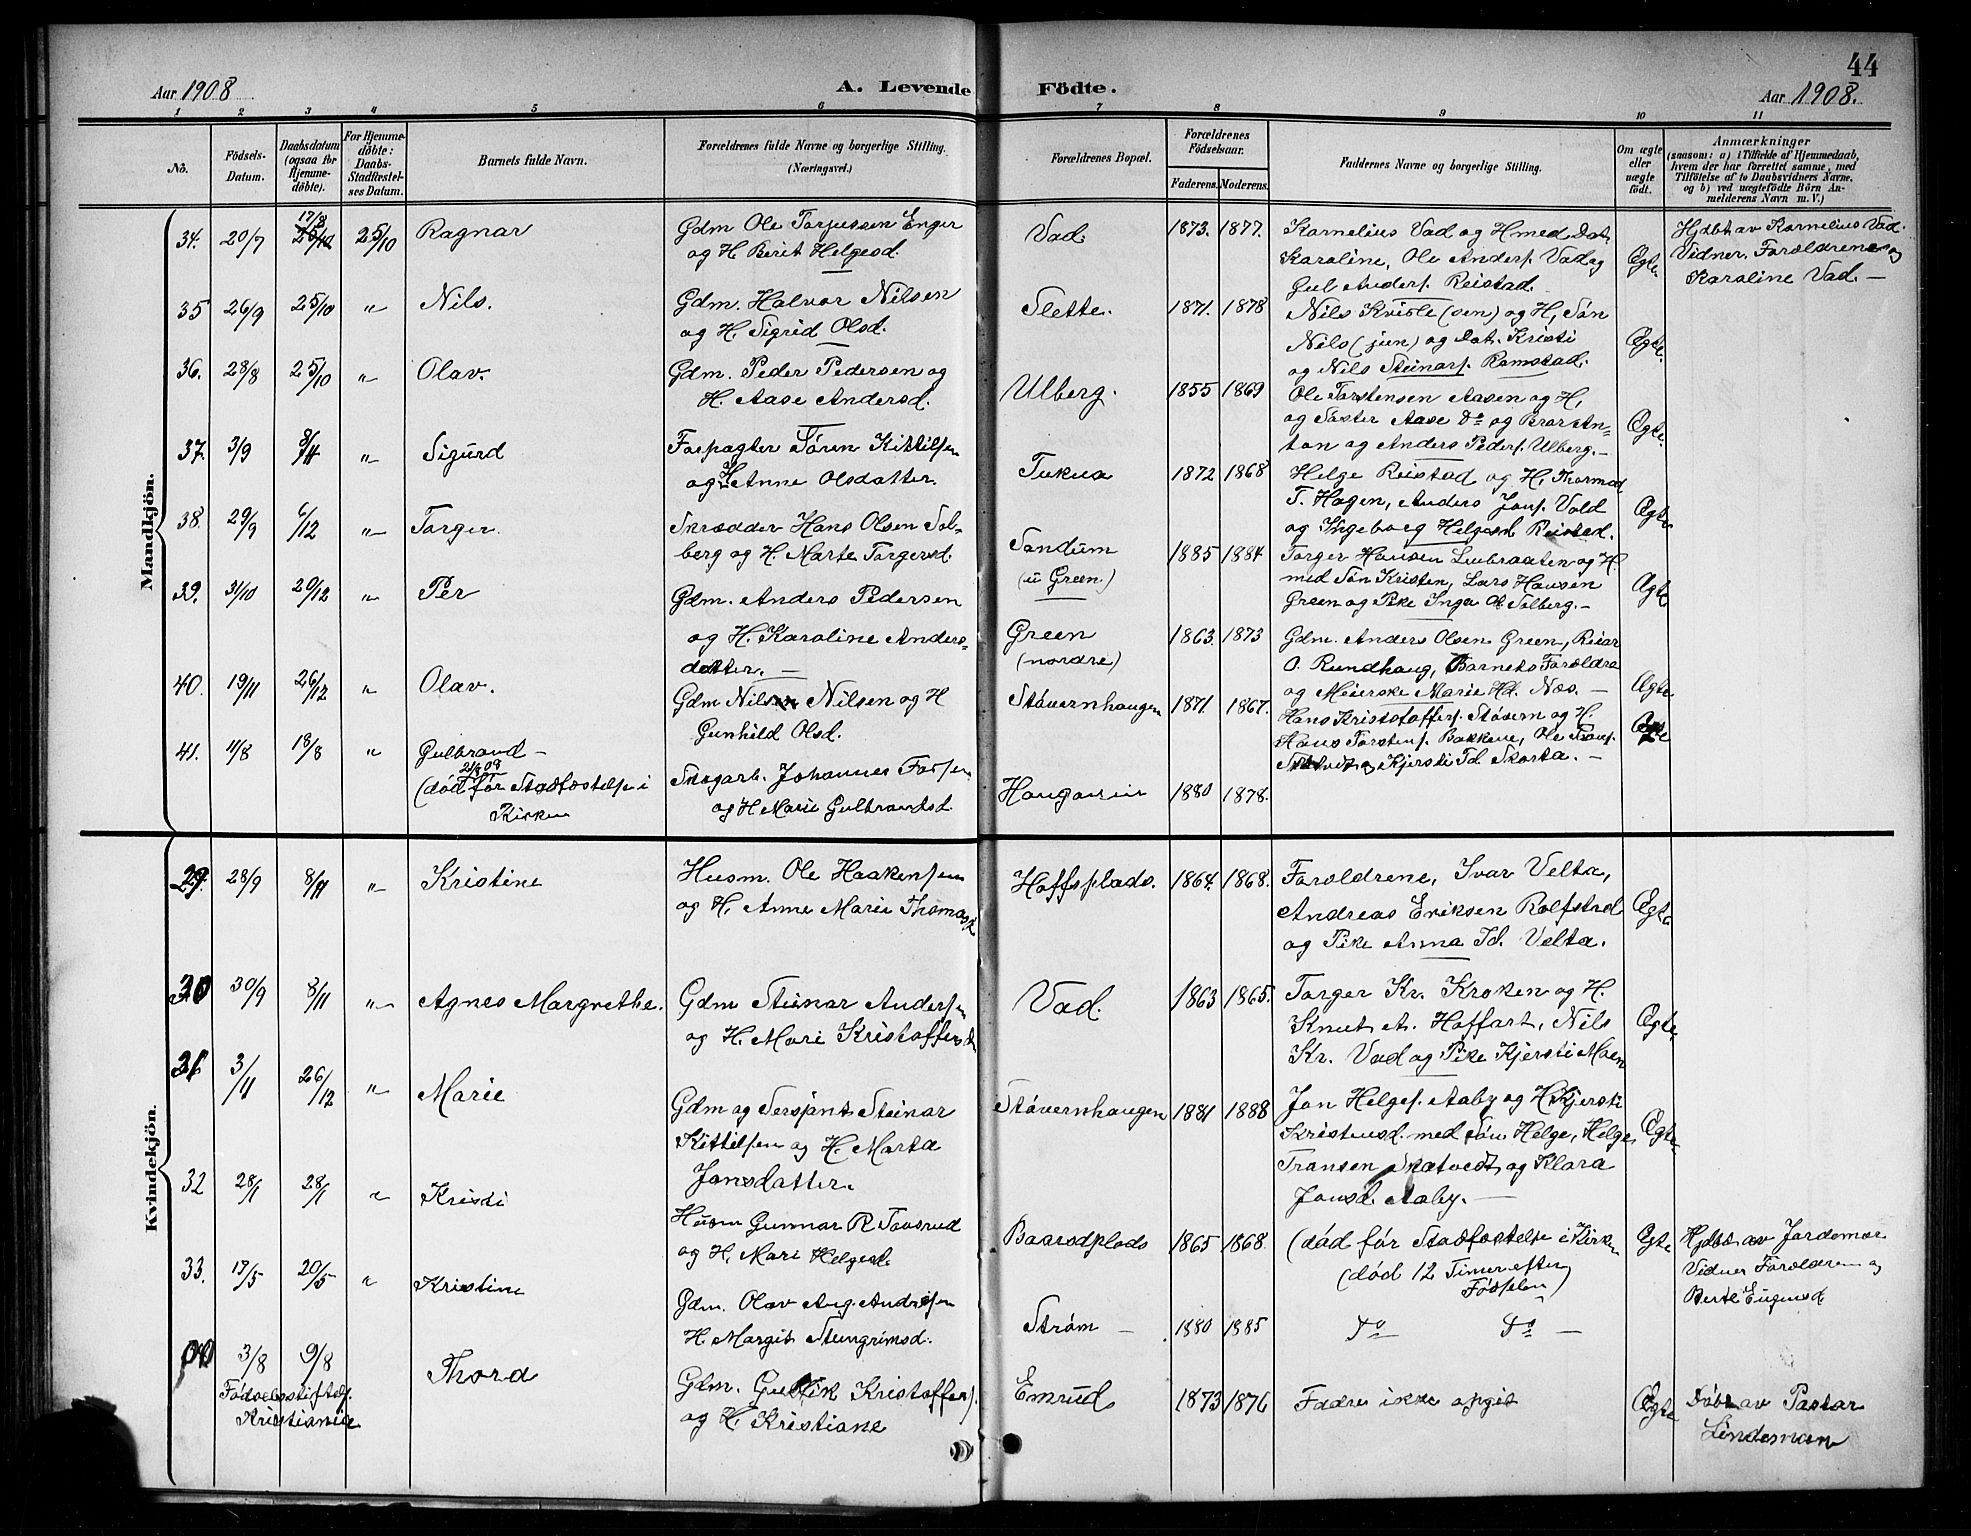 44
Aar 1908
A. Levende Födte.
Aar 1908.
1 2 3 4 5 6 7 8 9 10 11
No.
Födsels-
Datum.
Daabsdatum
(ogsaa for
Hjemme-
döbte).
For Hjemme-
döbte:
Daabs-
Stadfæstel-
ses Datum.
Barnets fulde Navn.
Forældrenes fulde Navne og borgerlige Stilling.
(Næringsvei.)
Forældrenes Bopæl.
Forældrenes
Födselsaar.
Faderens. Moderens.
Faddernes Navne og borgerlige Stilling.
Om ægte
eller
uægte
födt.
Anmærkninger
(saasom: a) i Tilfælde af Hjemmedaab,
hvem der har forrettet samme, med
Tilföielse af to Daabsvidners Navne.
og b) ved uægtefödte Börn An-
melderens Navn m. V.)
Mandkjön.
34. 20/7 17/8 25/10 Ragnar
Gdm Ole Torjussen Enger
og H. Berit Helgesd.
Vad. 1873. 1877.
Kornelius Vad og H med Dat.
Karoline, Ole Anders. Vad og
Gul. Anders. Reistad.
Ægte
Hjdbt av Kornelius Vad.
Vidner. Forældrene og
Karoline Vad. —
35 26/9 25/10 " Nils.
Gdm. Halvor Nilsen
og H. Sigrid Olsd.
Slette. 1871. 1878
Nils Kvisle (sen) og H, Søn
Nils (jun) og Dat. Kristi
og Nils Steinars. Ramstad.
Ægte.
36. 28/8 25/10 " Olav.
Gdm. Peder Pedersen og
H. Aase Andersd.
Ulberg. 1855 1869
Ole Torstensen Aasen og H,
og Søster Aase Do og Bror An-
ton og Anders Peders. Ulberg. —
Ægte.
37. 3/9 8/11 " Sigurd
Forpagter Søren Kittilsen
og H Anne Olsdatter.
Tukua 1872 1868
Helge Reistad og H, Thormod
T. Hagen, Anders Jons. Vold
og Ingeborg Helgesd. Reistad.
Ægte
38. 29/9 6/12 " Torger.
Skrædder Hans Olsen Sol-
berg og H. Marte Torgersd.
Sandum
(u Green.)
1885 1884.
Torger Hansen Liubraaten og H.
med Søn Kristen, Lars Hansen
Green og Pike Inga O. Solberg. —
Ægte
39. 31/10 20/12 " Per
Gdm. Anders Pedersen
og H. Karoline Anders-
datter. —
Green
(nordre)
1863. 1873
Gdm. Anders Olsen Green, Reiar
O. Rundhaug, Barnets Forældre
og Meierske Marie Hd. Næs. —
Ægte
40. 19/11 26/12 " Olav.
Gdm Nils Nilsen og H
Gunhild Olsd.
Støvernhaugen 1871. 1867.
Hans Kristoffers. Støvern og H.
Hans Torstens. Bakkene, Ole Frans.
Skatvedt og Kjersti Td. Skarta. —
Ægte
41. 11/8 18/8 " Gulbrand —
21/8 08
(død før Stadfæstelse i
Kirken
Skogarb. Johannes
og H Marie Gulbrandsd.
Haugarud 1880 1878.
Kvindekjön.
29. 28/9 8/11 " Kristine
Husm. Ole Haakensen
og H. Anne Marie Thomasd.
Hoffsplads. 1864. 1868.
Forældrene, Ivar Velta,
Andreas Eriksen Rolfstad
og Pike Anna Id. Velta.
Ægte
30 30/9 8/11 " Agnes Margrethe.
Gdm Steinar Andersen
og H. Mari Kristoffersd.
Vad. 1863 1865.
Torger Kr. Kroken og H.
Knut A. Hoffart, Nils
Kr. Vad og Pike Kjersti Moen
Ægte
31 3/11 26/12 " Marie
Gdm og Sersjant Steinar
Kittilsen og H. Marta
Jonsdatter.
Støvernhaugen 1881 1888
Jon Helges. Aaby og H Kjersti
Kristensd. med Søn Helge, Helge
Fransen Skatvedt og Klara
Jonsd. Aaby. —
Ægte
32 28/1 28/1 " Kristi
Husm Gunnar R Tovsrud
og H. Mari Helgesd.
Baardplads 1865 1868.
(død før Stadfæstelse i Kirken
(død 12 Timer efter
Fødselen)
Ægte
Hjdbt av Jordemor
Vidner Forældrene og
Berte Eugensd
33. 17/5 20/5 " Kristine
Gdm. Olav Aug. Andersen
H. Margit Steingrimsd.
Strøm — 1880 1885
Do Do —
3/8 9/8 Thord
Fødselsstiftels.
Kristiania
Gdm. Gulbrik Kristoffers.
og H. Kristiane
Emrud 1873 1876
Fadre ikke opgit
Ægte
Døbt av Pastor
Lindeman